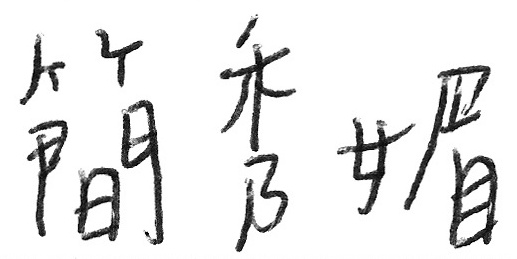 簡秀媚